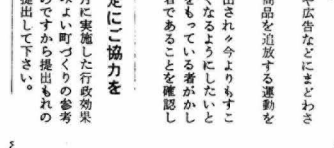 や広告などにまどわさ
商品を追放する運動を
出され、今よりもすこ
くなるようにしたいと
をもっている者がかし
者であることを確認し
定にご協力を
月に実施した行政効果
よい町づくりの参考
ですから提出もれの
提出して下さい。